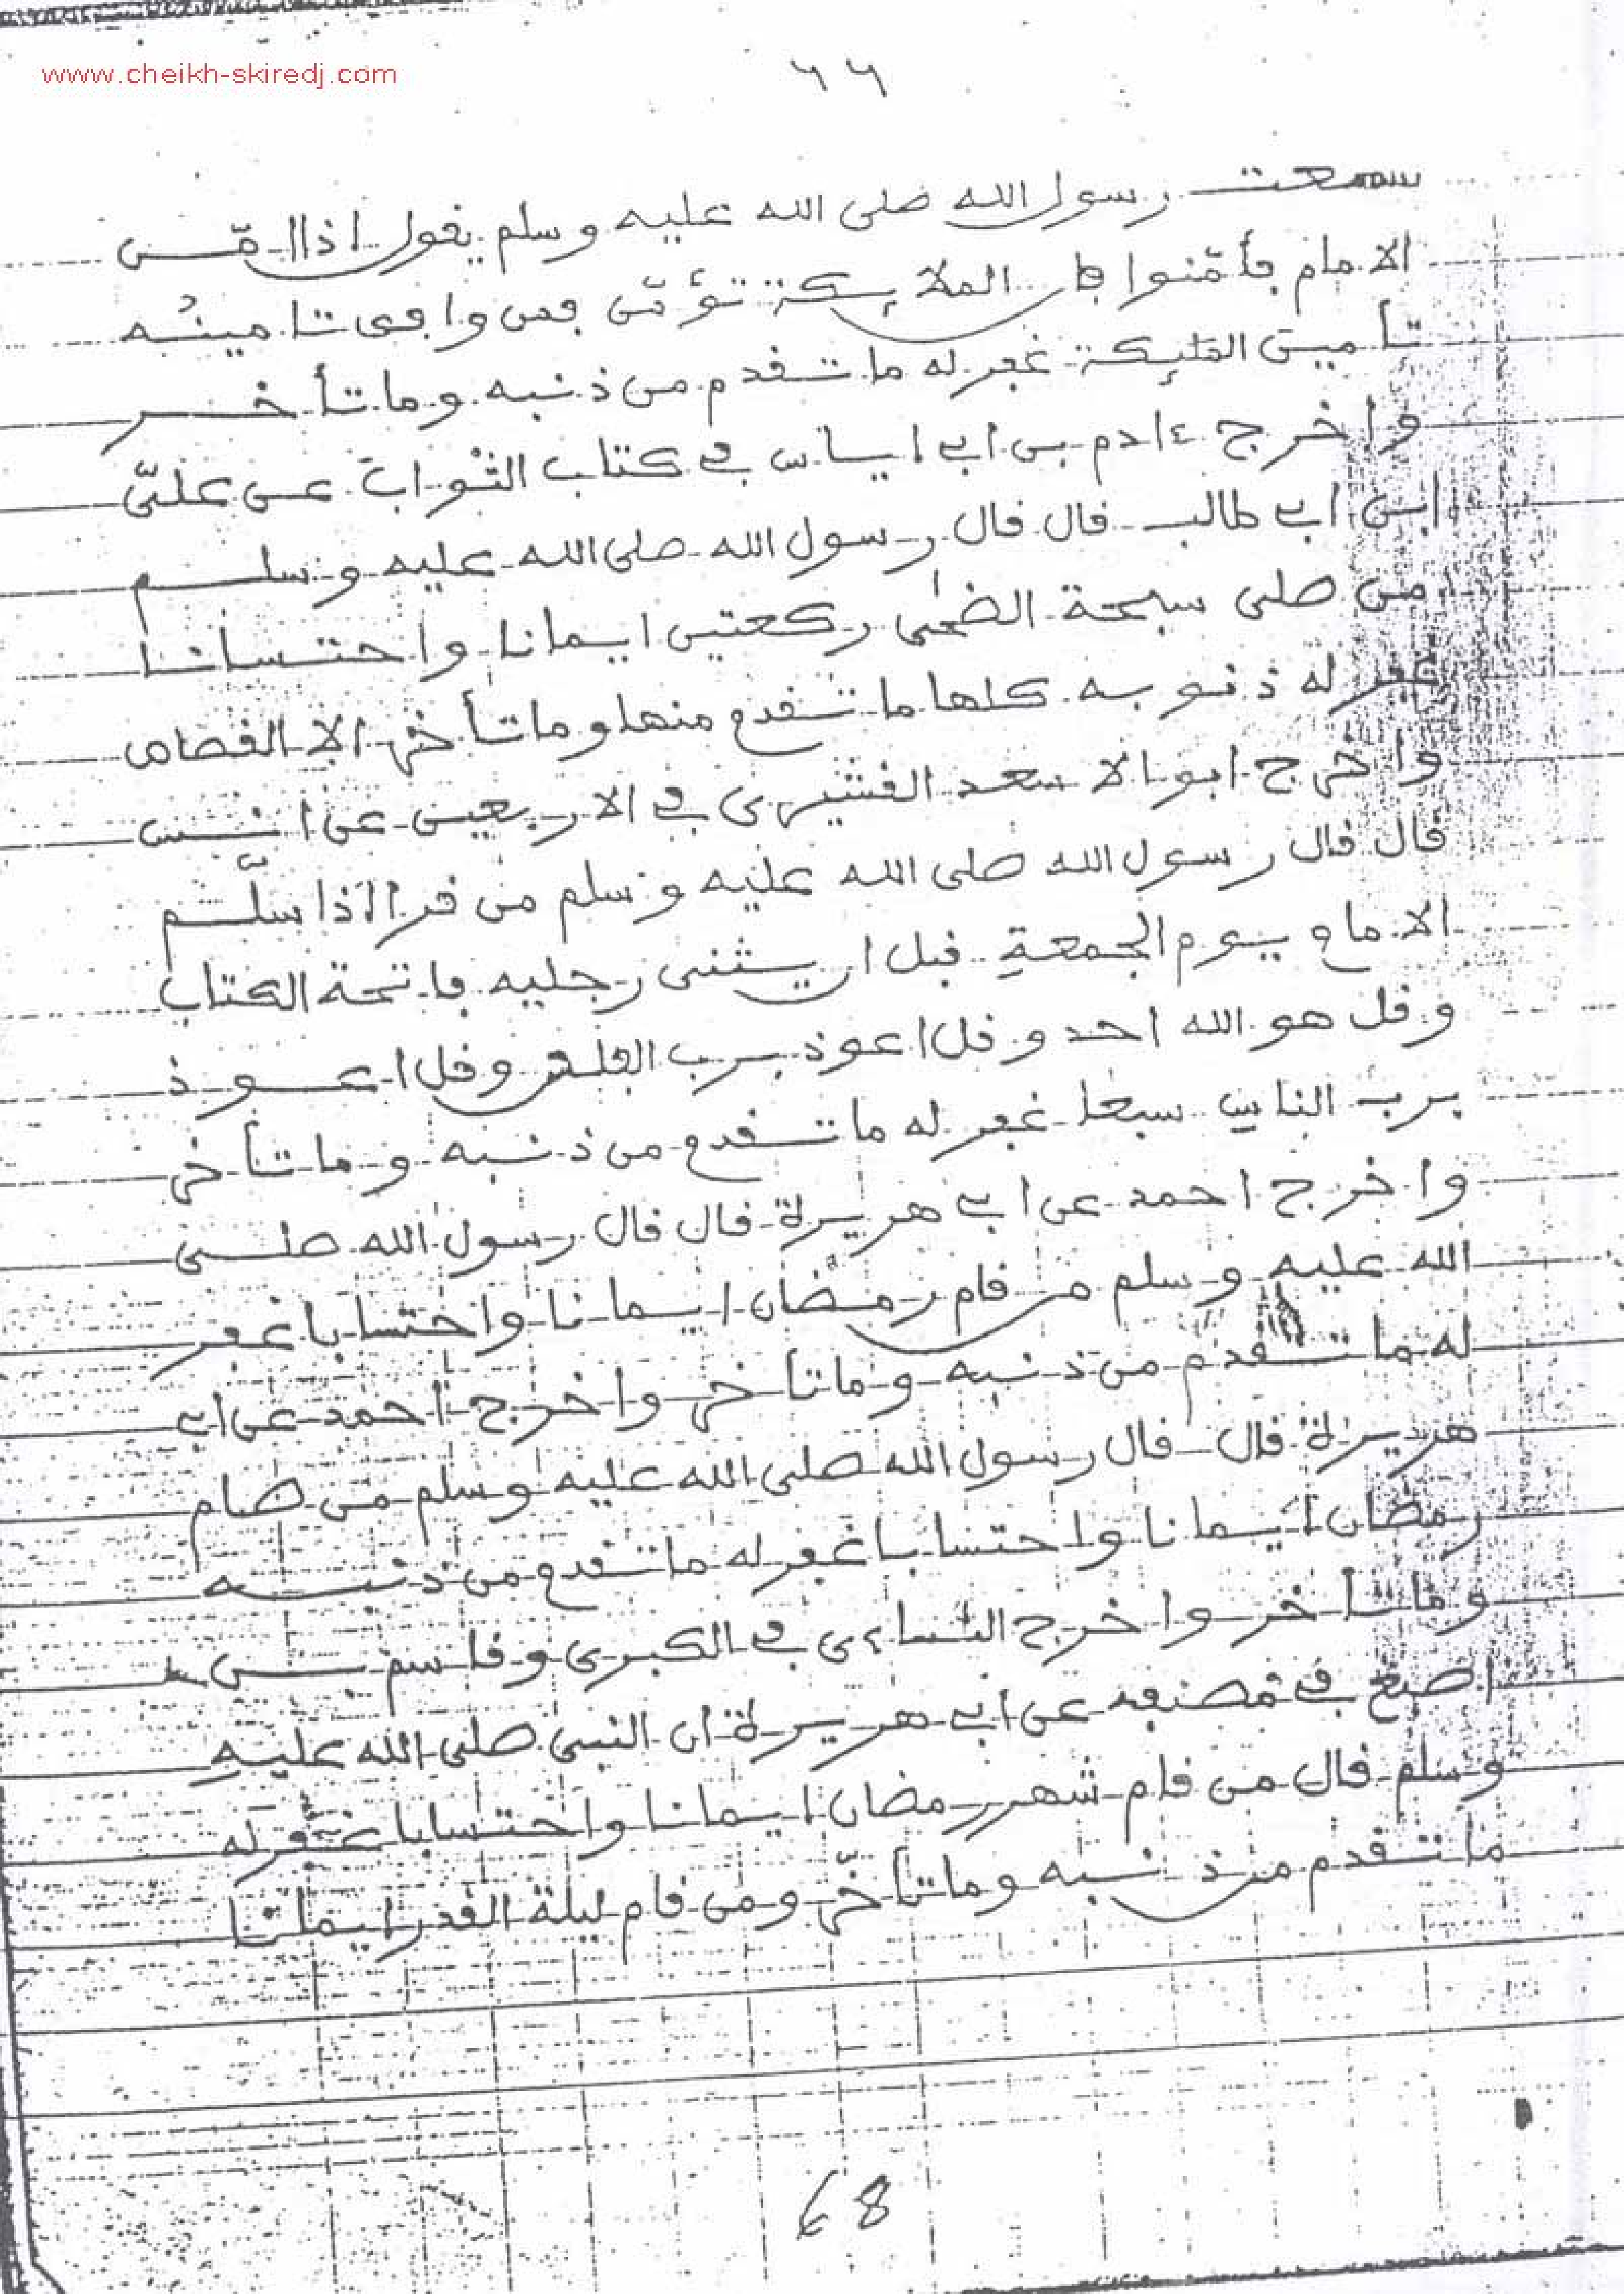 www.cheikh-skiredj.com
٦٦
سمعت رسول الله صلى الله عليه وسلم يقول اذا امّن
الامام فأمّنوا فإن الملائكة تؤمّن فمن وافق تامينُه
تأمين الملئكة غفر له ما تقدم من ذنبه وما تأخر
واخرج ءادم بن ابي اياس في كتاب الثواب عن عليّ
ابن ابي طالب قال قال رسول الله صلى الله عليه وسلم
من صلى سبحة الضحى ركعتين ايمانا واحتسابا
غفر له ذنوبه كلها ما تقدم منها وما تأخر الا القصاص
واخرج ابو الاسعد القشيري في الاربعين عن انس
قال قال رسول الله صلى الله عليه وسلم من قرأ اذا سلّم
الامام يوم الجمعةِ قبل ان يثنى رجليه فاتحة الكتاب
وقل هو الله احد وقل اعوذ برب الفلق وقل اعوذ
برب الناس سبعا غفر له ما تقدم من ذنبه وما تأخر
واخرج احمد عن ابي هريرة قال قال رسول الله صلى
الله عليه وسلم من قام رمضان ايمانا واحتسابا غفر
له ما تقدم من ذنبه وما تأخر واخرج احمد عن ابي
هريرة قال قال رسول الله صلى الله عليه وسلم من صام
رمضان ايمانا واحتسابا غفر له ما تقدم من ذنبه
وما تأخر واخرج النساءى في الكبرى وقاسم بن
اصبغ في مصنفه عن ابي هريرة ان النبى صلى الله عليه
وسلم قال من قام شهر رمضان ايمانا واحتسابا غفر له
ما تقدم من ذنبه وما تأخّر ومن قام ليلة القدر ايمانا
68